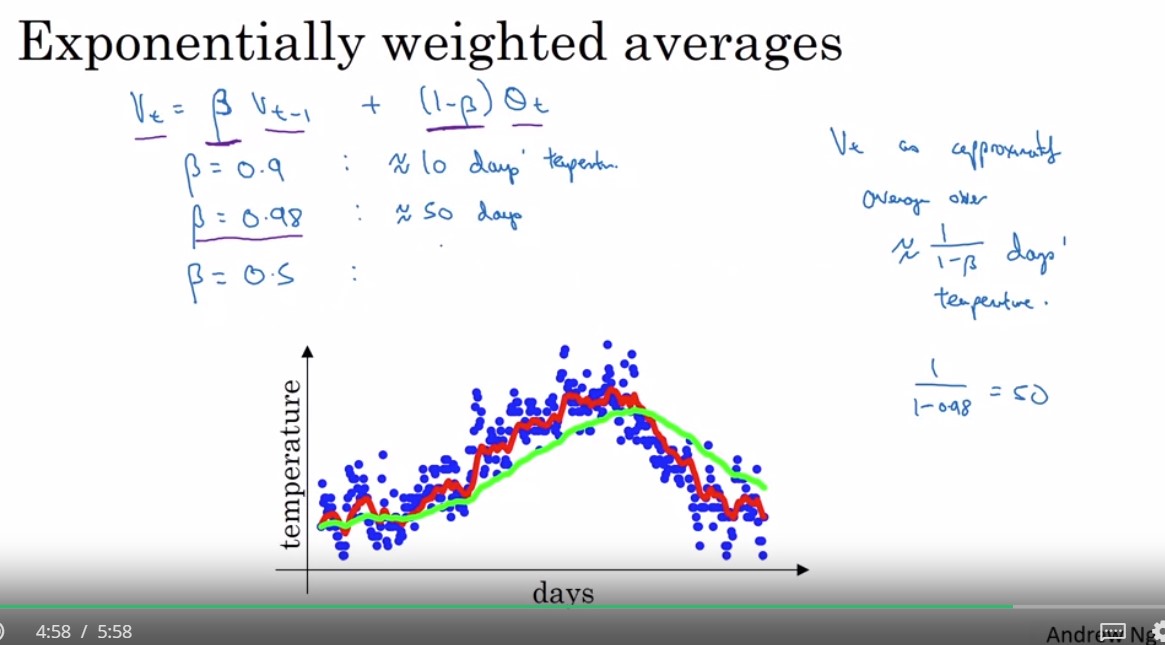 Exponentially weighted averages
Vt = β Vt-1 + (1-β) θt
β = 0.9 : ≈ 10 days' temperature.
β = 0.98 : ≈ 50 days
β = 0.5 :
Vt as approximately
average over
≈ 1/(1-β) days'
temperature.
1/(1-0.98) = 50
temperature
days
4:58 / 5:58
Andrew Ng